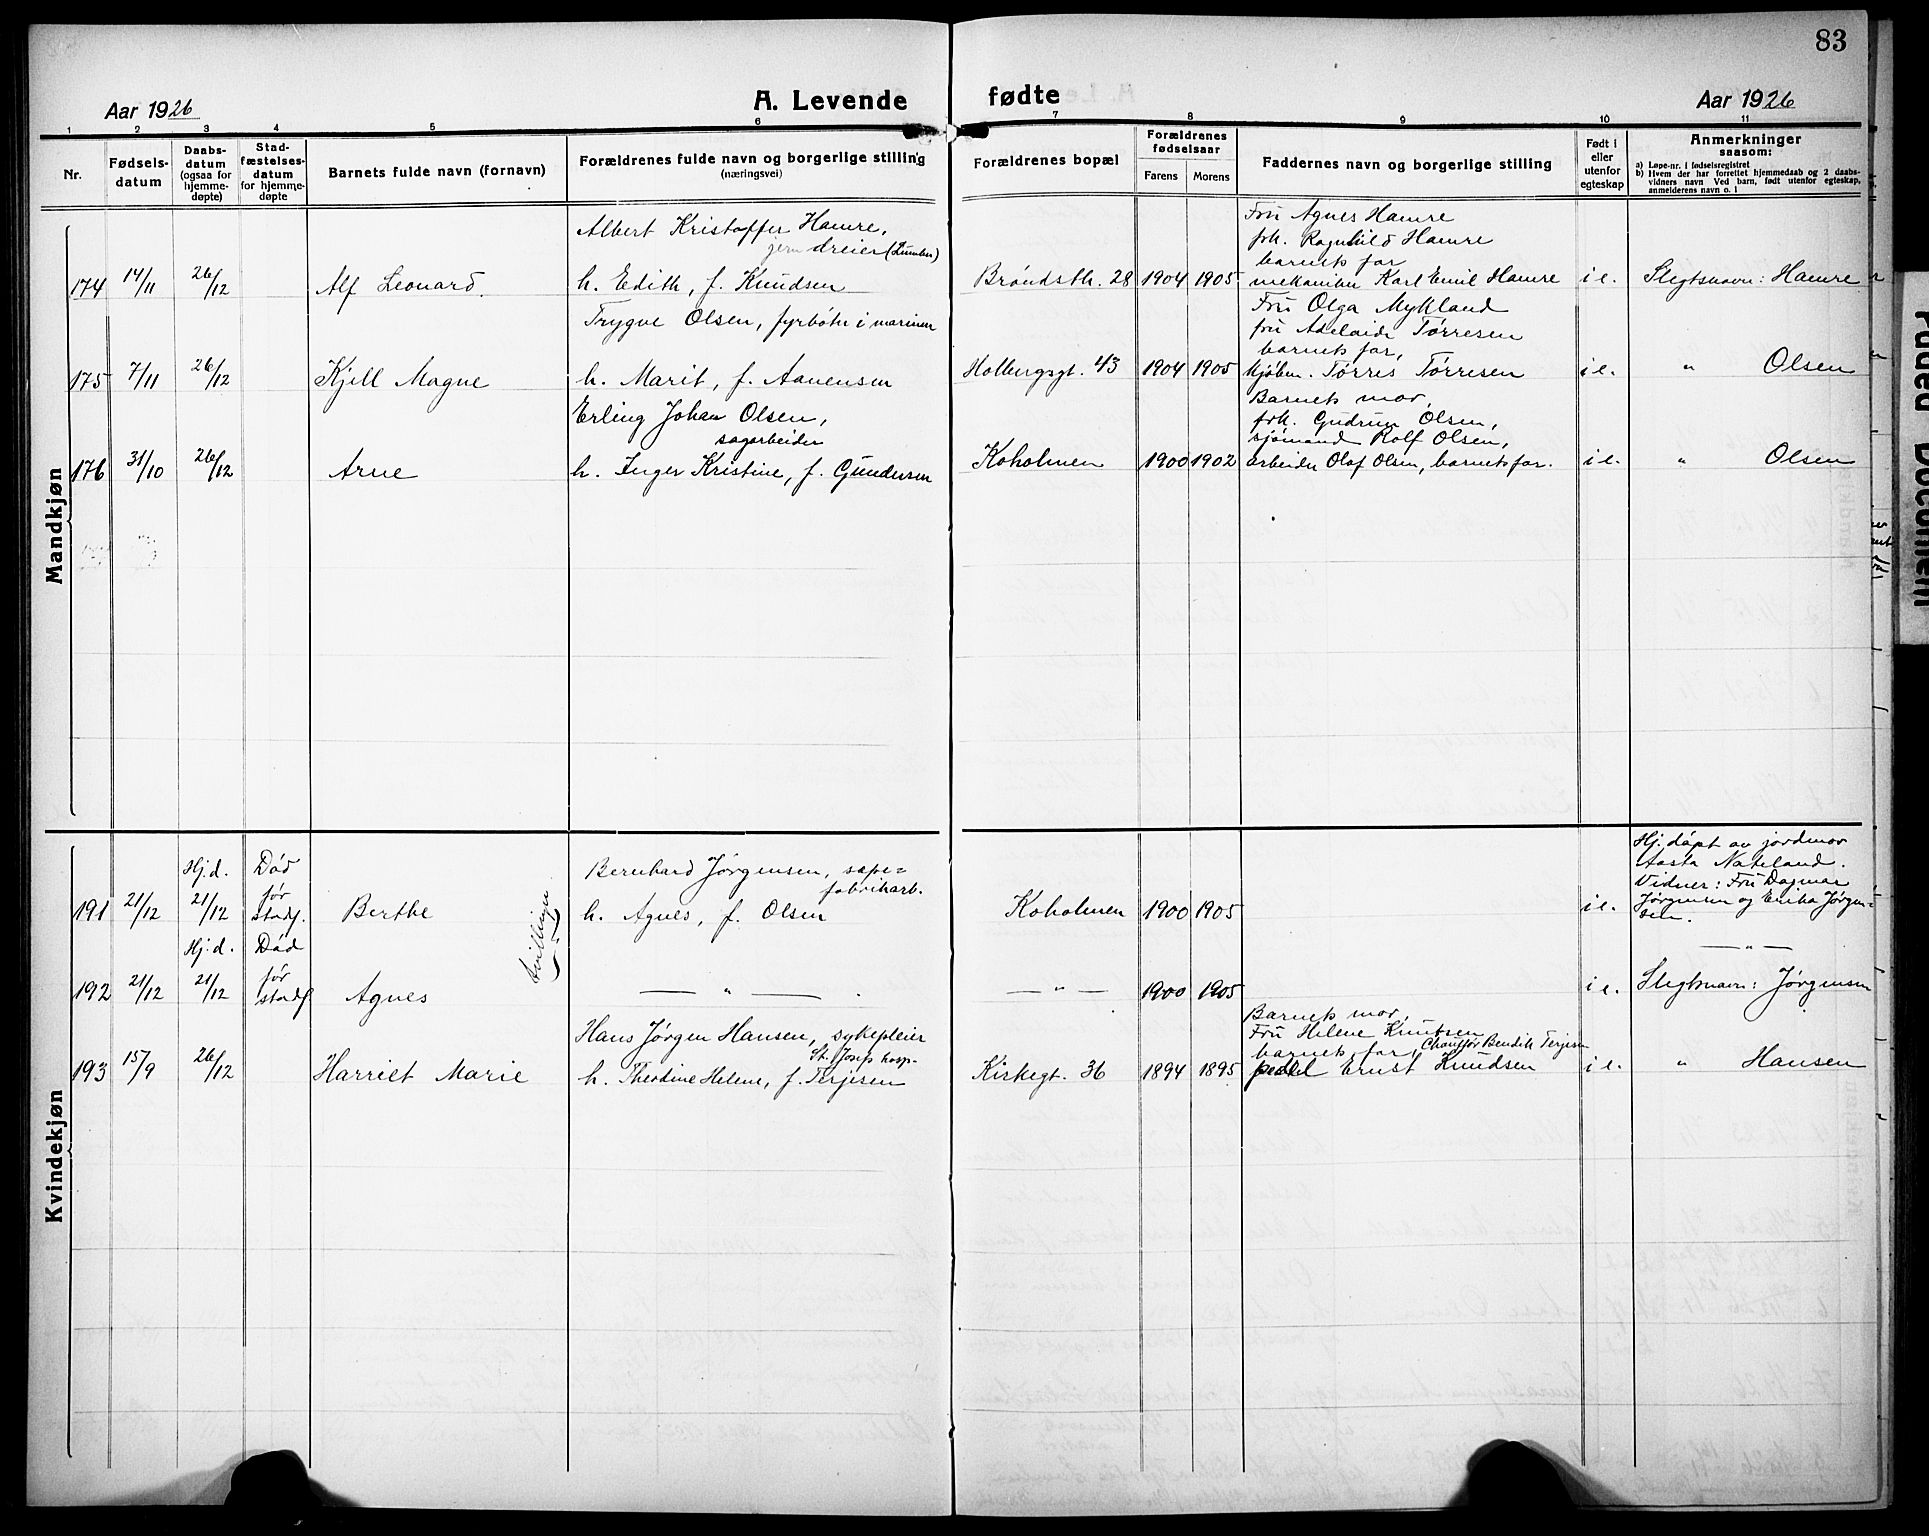 83
Aar 1926
A. Levende fødte
Aar 1926
1 2 3 4 5 6 7 8 9 10 11
Nr.
Fødsels-
datum
Daabs-
datum
(ogsaa for
hjemme-
døpte)
Stad-
fæstelses-
datum
for hjemme-
døpte
Barnets fulde navn (fornavn)
Forældrenes fulde navn og borgerlige stilling
(næringsvei)
Forældrenes bopæl
Forældrenes
fødselsaar
Farens
Morens
Faddernes navn og borgerlige stilling
Født i
eller
utenfor
egteskap
Anmerkninger
saasom:
a) Løpe-nr. i fødselsregistret
b) Hvem der har forrettet hjemmedaab og 2 daabs-
vidners navn Ved barn, født utenfor egteskap,
anmelderens navn o. l
Mandkjøn
174
14/11
26/12
Alf Leonard
Albert Kristoffer Hamre,
jerndreier
h. Edith, f. Knudsen
Brøndsth. 28
1904
1905
Fru Agnes Hamre
frk. Ragnhild Hamre
barnets far
mekaniker Karl Emil Hamre
i e.
Slegtsnavn: Hamre
175
7/11
26/12
Kjell Magne
Trygve Olsen, fyrbøter i marinen
h. Marit, f. Aanensen
Holbergsgt. 43
1904
1905
Fru Olga Mykland
fru Adelaide Tørresen
barnets far,
kjøbm. Tørres Tørresen
i e.
" Olsen
176
31/10
26/12
Arne
Erling Johan Olsen,
sagarbeider
h. Inger Kristine, f. Gundersen
Koholmen
1900
1902
Barnets mor,
frk. Gudrun Olsen,
sjømand Rolf Olsen,
arbeider Olaf Olsen, barnets far.
i e.
" Olsen
Kvindekjøn
191
21/12
Hj.d.
21/12
Død
før
stadf.
Berthe
tvillinger
Bernhard Jørgensen, sæpe=
fabrikarb.
h. Agnes, f. Olsen
Koholmen
1900
1905
i e.
Hj. døpt av jordmor
Aasta Nateland.
Vidner: Fru Dagmar
Jørgensen og Erika Jørgen=
sen.
192
21/12
Hj.d.
21/12
Død
før
stadf
Agnes
— " —
— " —
1900
1905
i e.
— " —
Slegtsnavn: Jørgensen
193
15/9
26/12
Harriet Marie
Hans Jørgen Hansen, sykepleier
St. Josefs hosp.
h. Theodine Helene, f. Terjesen
Kirkegt. 36
1894
1895
Barnets mor,
Fru Helene Knutsen
barnets far, Chauffør Bendik Terjesen
pedel Ernst Knudsen
i e.
" Hansen